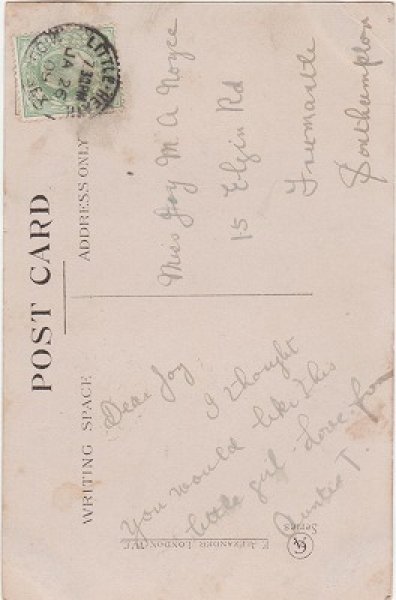 POST CARD
WRITING SPACE
ADDRESS ONLY
Dear Joy
I thought
you would like this
little girl. Love from
Auntie T.
Miss Joy M A Noyce
15 Elgin Rd
Freemantle
Southampton
LITTLE
JA 26
09
E. ALEXANDER LONDON, W.C.
Series